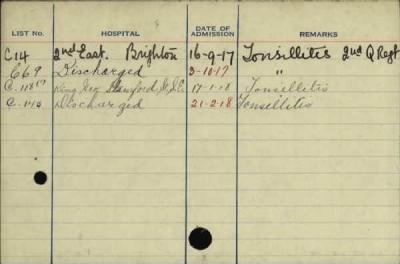 LIST No. HOSPITAL DATE OF ADMISSION REMARKS
C14 2nd East. Brighton 16-9-17 Tonsillitis 2nd Q Regt
C69 Discharged 3-10-17 "
King Geo. Stamford, St, S.E. 17-1-18 Tonsillitis
Discharged 21-2-18 Tonsillitis